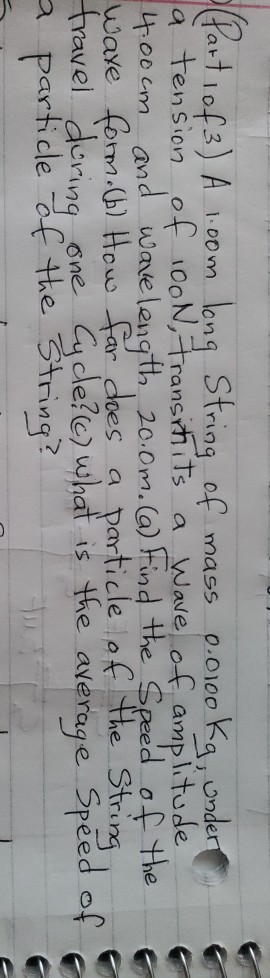 (Part 1 of 3) A 1.00m long String of mass 0.0100 Kg, under
a tension of 100N, transmits a wave of amplitude
4.00cm and wavelength 20.0m. (a) Find the Speed of the
wave form. (b) How far does a particle of the String
travel during one Cycle? (c) What is the average Speed of
a particle of the String?